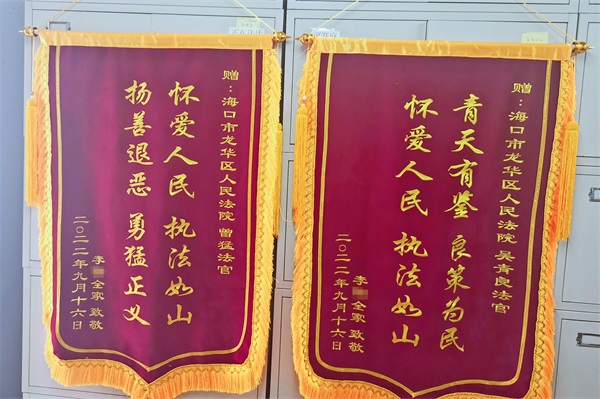 赠：海口市龙华区人民法院 曾猛法官
怀爱人民 执法如山
扬善退恶 勇猛正义
李 全家致敬
二〇二二年九月十六日
赠：海口市龙华区人民法院 吴青良法官
青天有鉴 良策为民
怀爱人民 执法如山
李 全家致敬
二〇二二年九月十六日